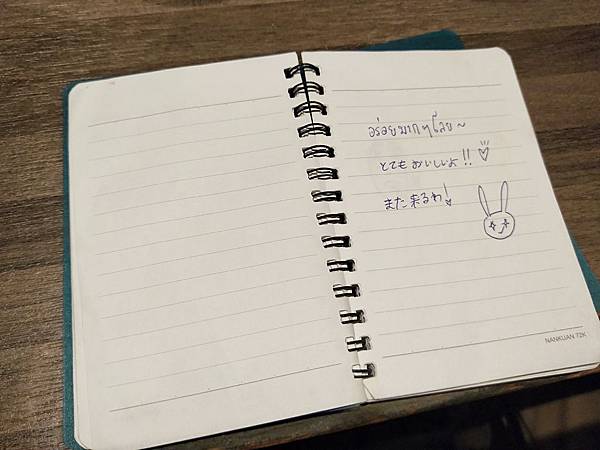 อร่อยมากๆเลย~
とてもおいしいよ!!
また来るわ!
NANKUAN 72K